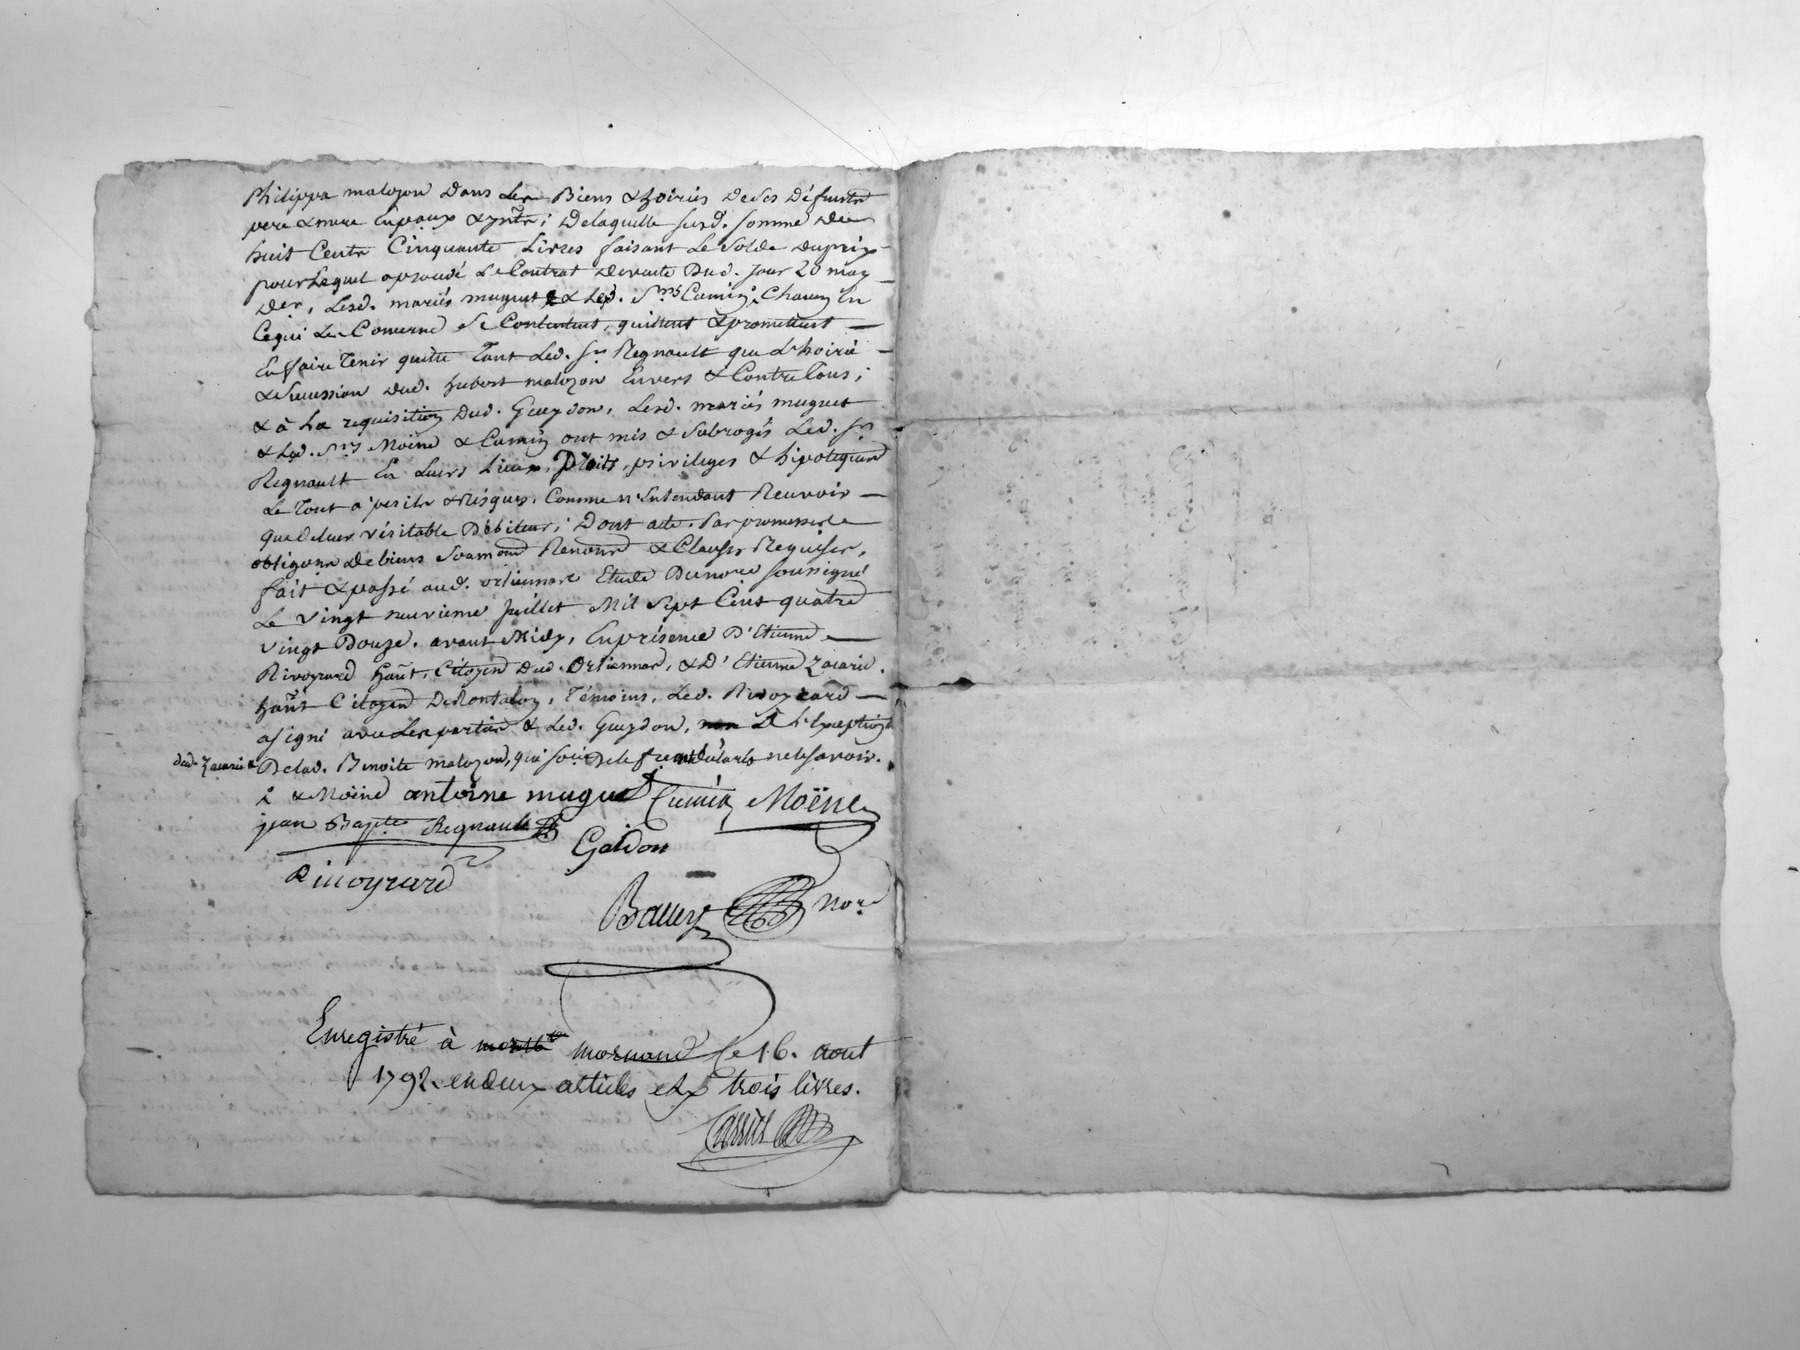 Philippa malozon Dans Les Biens & hoiries de ses Défunts
pere & mere Epoux & ; Delaquelle susd. somme de
huit Cents Cinquante Livres faisant Le Solde du prix
pour Lequel a passé Le Contrat devente Dud. Jour 20 may
Der, Lesd. mariés muguet & Led. Srs Cumin, Chacun En
Cequi Le Concerne se Contentent, quittent & promettent
En faire Tenir quitte Tant Led. Sr Regnault que L'hoirie
& Succession dud. hubert malozon Envers & Contre Tous;
& à La requisition Dud. Gueydon, Lesd. mariés muguet
& Led. Srs Moëne & Cumin ont mis & Subrogés Led. Sr
Regnault En Leurs Lieux, Droits, privileges & hipoteques
Le Tout a perils & Risques, Comme n'Entendant Recevoir
que deleur véritable Débiteur; Dont acte. Par promesses
obligons de biens Renonc & Clauses Requises,
fait & passé aud. orliennas Etude Dunore soussigné
Le Vingt neuvieme Juillet Mil Sept Cent quatre
Vingt Douze. avant Midy, En présence D'Etienne
Rivoyrard hañt, Citoyen Dud. Orliennas, & D'Etienne Zacarie
hañt Citoyen De Montalon, Témoins, Led. Rivoyrard
a signé avec Les parties & Led. Gueydon, non à L'Exception
dud. Zacarie & Delad. Benoite malozon, qui sur Dece ont déclarés ne le savoir.
& Moëne antoine muguet Cumin Moëne
jean Bapte Regnault Gaidon
Rivoyrard
Bailly Nore
Enregistré à mornand le 16. aout
1792. en deux articles et Rx trois livres.